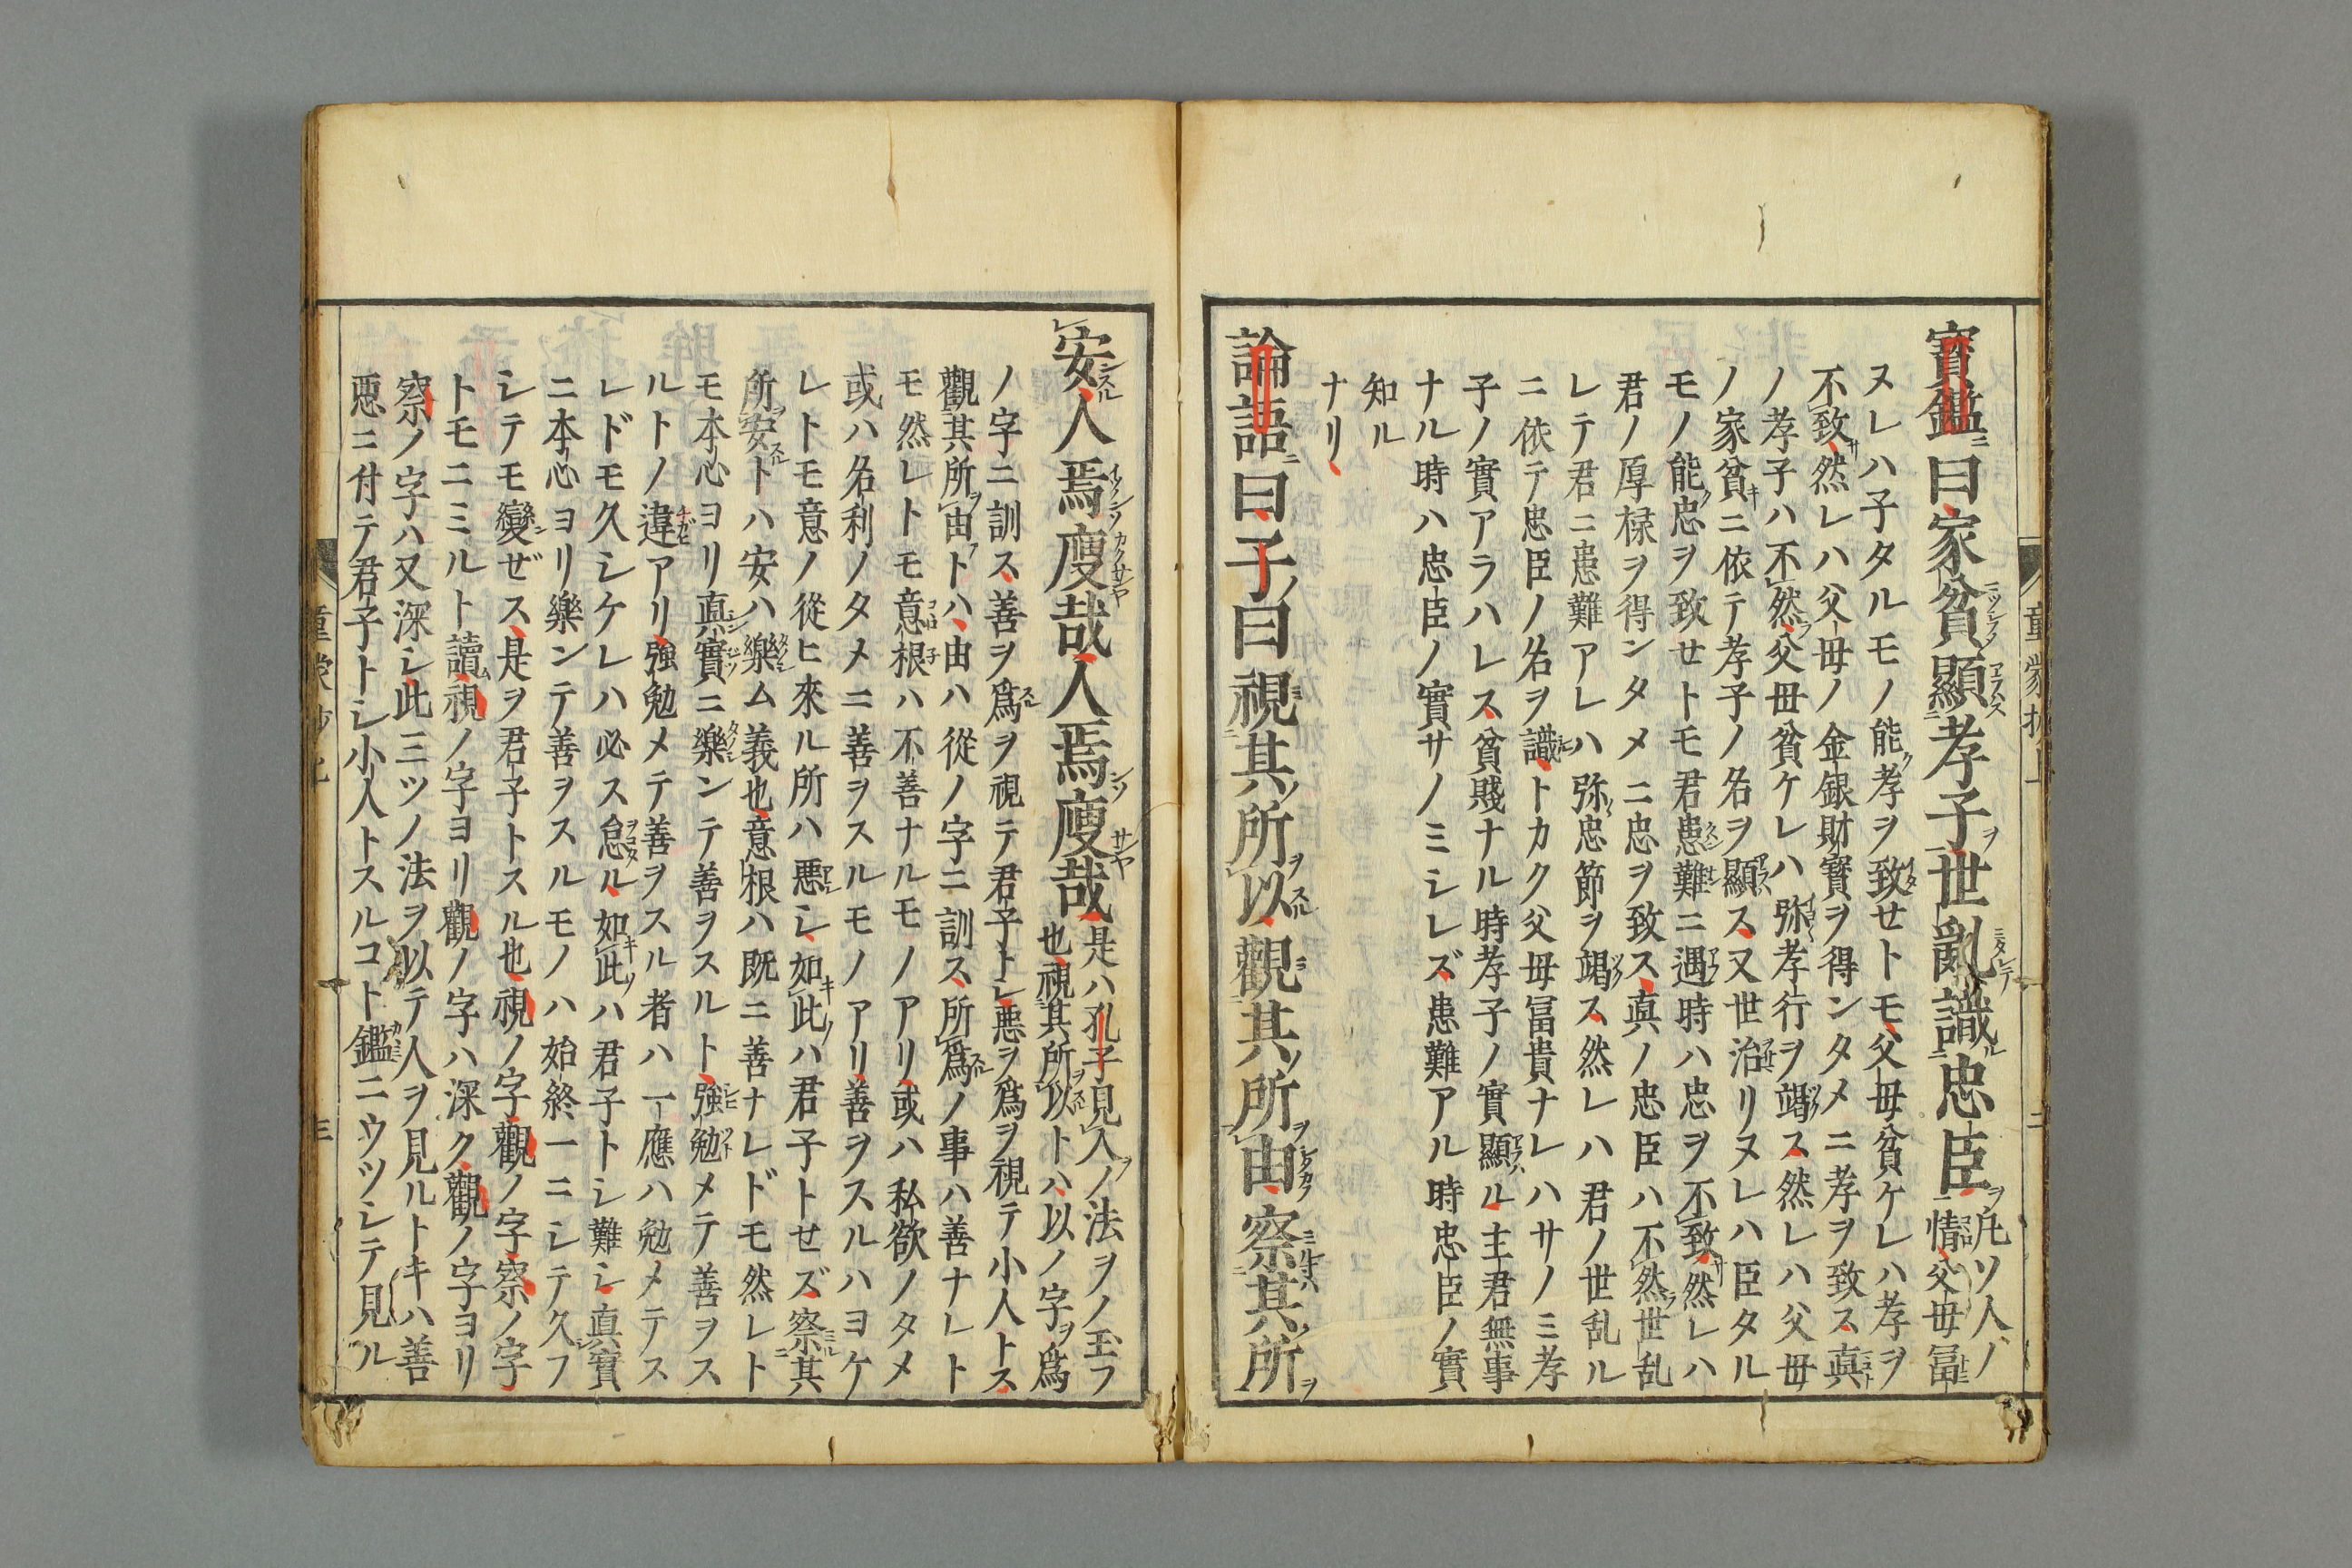 寳鑑曰家貧顯孝子世亂識忠臣凢ソ人ノ
情父母冨
ヌレハ子タルモノ能孝ヲ致せトモ父母貧ケレハ孝ヲ
不致然レハ父母ノ金銀財寳ヲ得ンタメニ孝ヲ致ス真
ノ孝子ハ不然父母貧ケレハ弥孝行ヲ竭ス然レハ父母
ノ家貧ニ依テ孝子ノ名ヲ顯ス又世治リヌレハ臣タル
モノ能忠ヲ致せトモ君患難ニ遇時ハ忠ヲ不致然レハ
君ノ厚禄ヲ得ンタメニ忠ヲ致ス真ノ忠臣ハ不然世乱
レテ君ニ患難アレハ弥忠節ヲ竭ス然レハ君ノ世乱ル
ニ依テ忠臣ノ名ヲ識トカク父母冨貴ナレハサノミ孝
子ノ實アラハレス貧賤ナル時孝子ノ實顯ル主君無事
ナル時ハ忠臣ノ實サノミシレズ患難アル時忠臣ノ實
知ル
ナリ
論語曰子曰視其所以觀其所由察其所
安人焉廋哉人焉廋哉是ハ孔子見人ノ法ヲノ玉フ
也視其所以トハ以ノ字ヲ爲
ノ字ニ訓ス善ヲ爲ヲ視テ君子トシ悪ヲ爲ヲ視テ小人トス
觀其所由トハ由ハ從ノ字ニ訓ス所爲ノ事ハ善ナレト
モ然レトモ意根ハ不善ナルモノアリ或ハ私欲ノタメ
或ハ名利ノタメニ善ヲスルモノアリ善ヲスルハヨケ
レトモ意ノ從ヒ來ル所ハ悪シ如此ハ君子トせズ察其
所安トハ安ハ樂ム義也意根ハ既ニ善ナレドモ然レト
モ本心ヨリ真實ニ樂ンテ善ヲスルト強勉メテ善ヲス
ルトノ違アリ強勉メテ善ヲスル者ハ一應ハ勉メテス
レドモ久シケレハ必ス怠ル如此ハ君子トシ難シ真實
ニ本心ヨリ樂ンテ善ヲスルモノハ始終一ニシテ久フ
シテモ變ぜス是ヲ君子トスル也視ノ字觀ノ字察ノ字
トモニミルト讀視ノ字ヨリ觀ノ字ハ深ク觀ノ字ヨリ
察ノ字ハ又深シ此三ツノ法ヲ以テ人ヲ見ルトキハ善
悪ニ付テ君子トシ小人トスルコト鑑ニウツシテ見ル